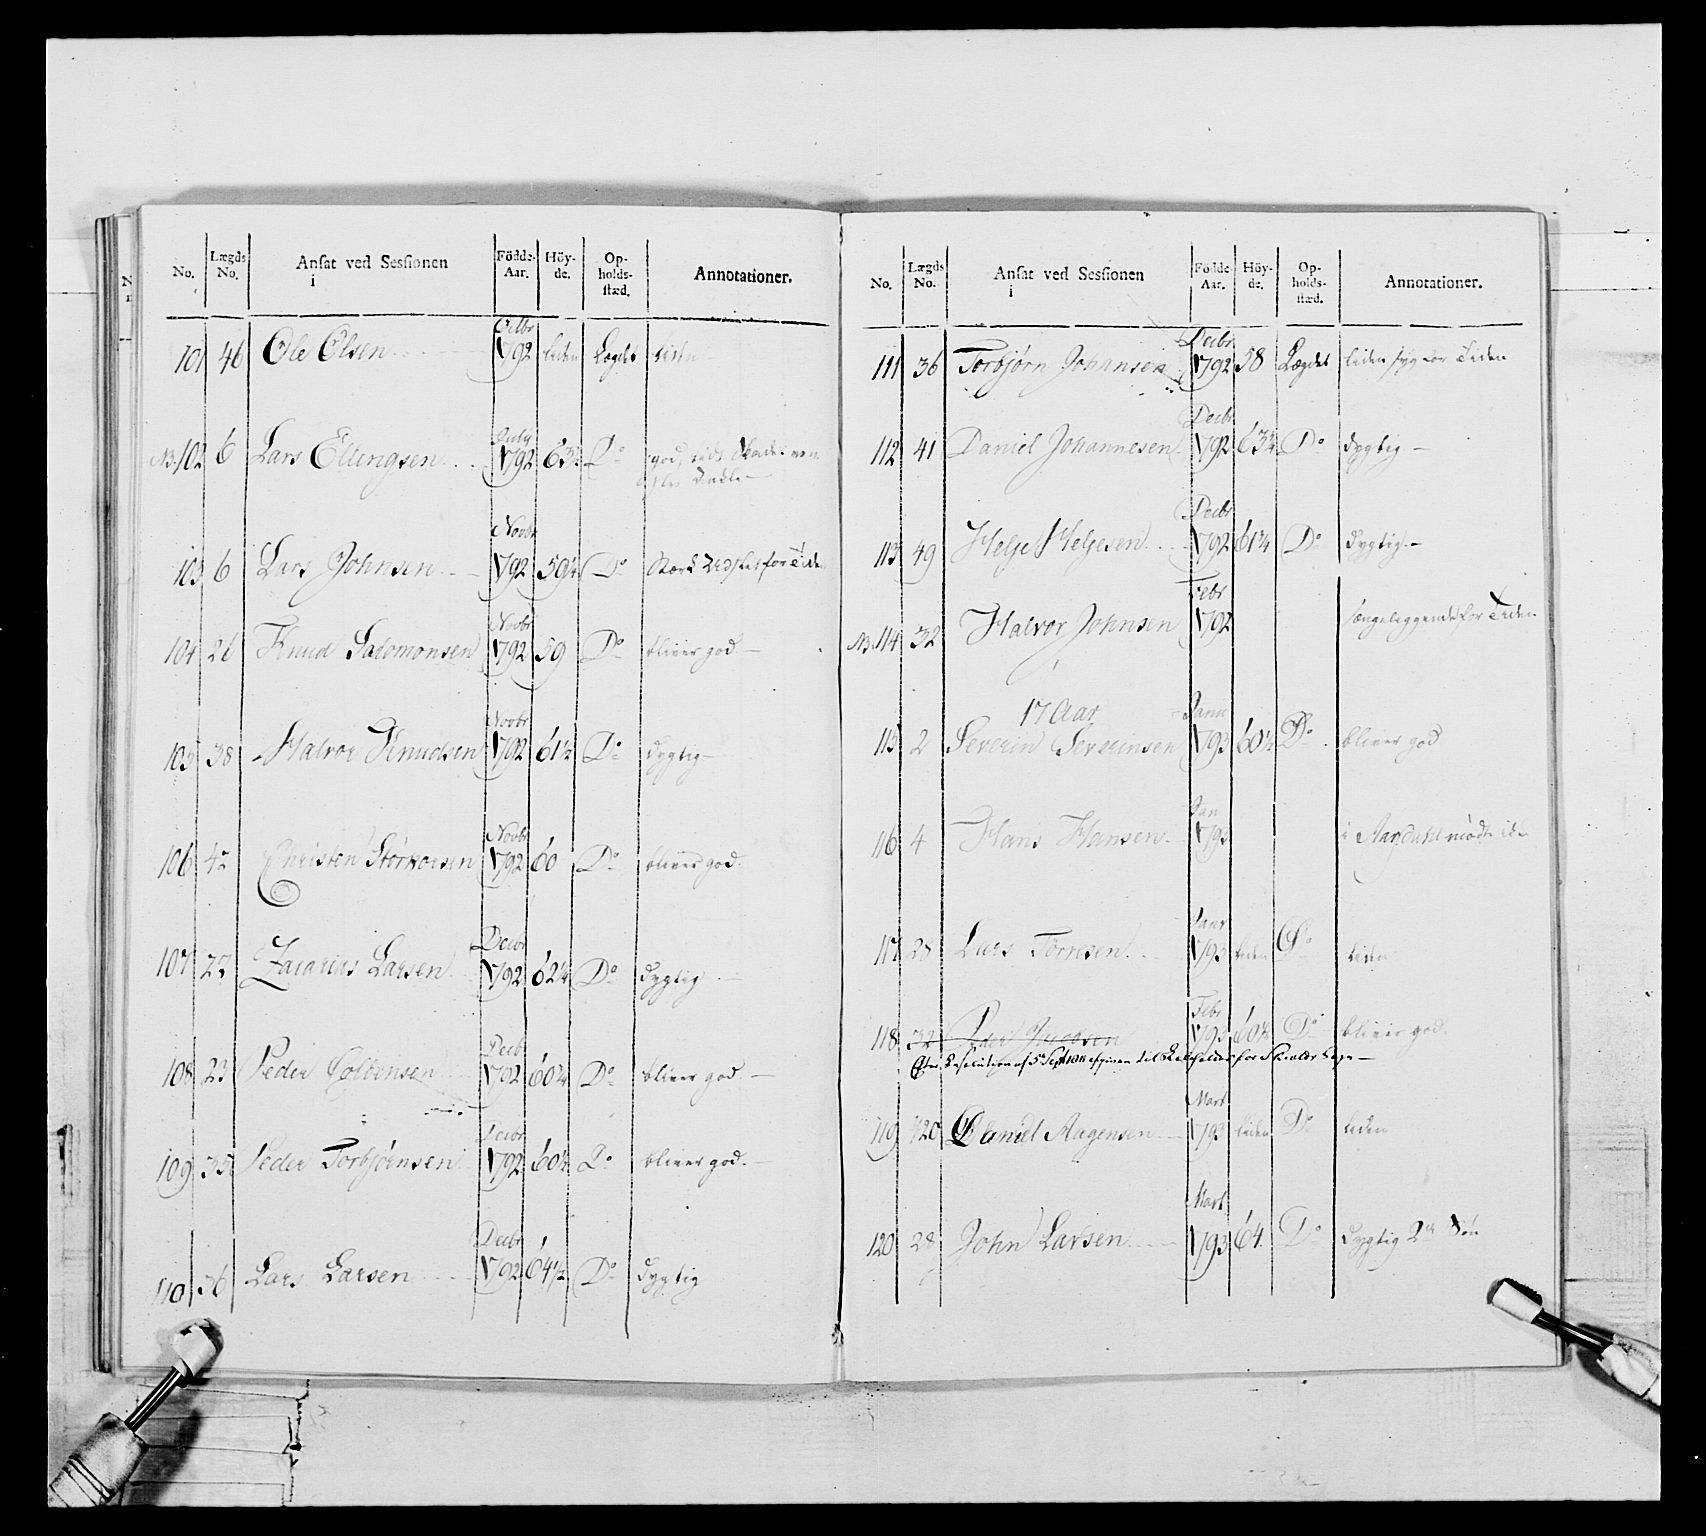 No. Lægds No. Ansat ved Sessionen i Födde-Aar. Höy-de. Op-holds-stæd. Annotationer.
101 46 Ole Olsen Octbr 1792 liden Lægdet liden
NB. 102 6 Lars Ellingsen July 1792 63½ Do god,
103 6 Lars Johnsen Novbr 1792 59¼ Do for Tiden
104 26 Knud Salomonsen Novbr 1792 59 Do bliver god
105 38 Halvor Knudsen Novbr 1792 61½ Do dygtig
106 42 Christen Novbr 1792 60 Do bliver god.
107 22 Zacarias Larsen Decbr 1792 62¼ Do dygtig
108 23 Peder Decb 1792 60¼ Do bliver god
109 35 Peder Torbjørnsen Decbr 1792 60½ Do bliver god.
110 36 Lars Larsen Decbr 1792 64½ Do dygtig
No. Lægds No. Ansat ved Sessionen i Födde-Aar. Höy-de. Op-holds-stæd. Annotationer.
111 36 Torbjørn Johansen Decbr 1792 58 Lægdet liden syg for Tiden
112 41 Daniel Johannesen Decbr 1792 63¼ Do dygtig
113 49 Helje Heljesen Decbr 1792 61¼ Do dygtig
NB. 114 32 Halvor Johnsen Febr 1792 sængeliggende for Tiden
17 Aar
115 2 Severin Severinsen Janu 1793 60½ Do bliver god
116 4 Hans Hansen Jan 1793 i Arendahl mødte ikke
117 28 Lars Tørresen Janr 1793 liden Do liden
118 32 Peder Jacobsen Febr 1793 60½ Do bliver god.
Efter Resolution af 5te Septr 1811 for
119 20 Daniel Aagensen Mart 1793 liden Do liden
120 28 John Larsen Mart 1793 64 Do dygtig 2den Søn